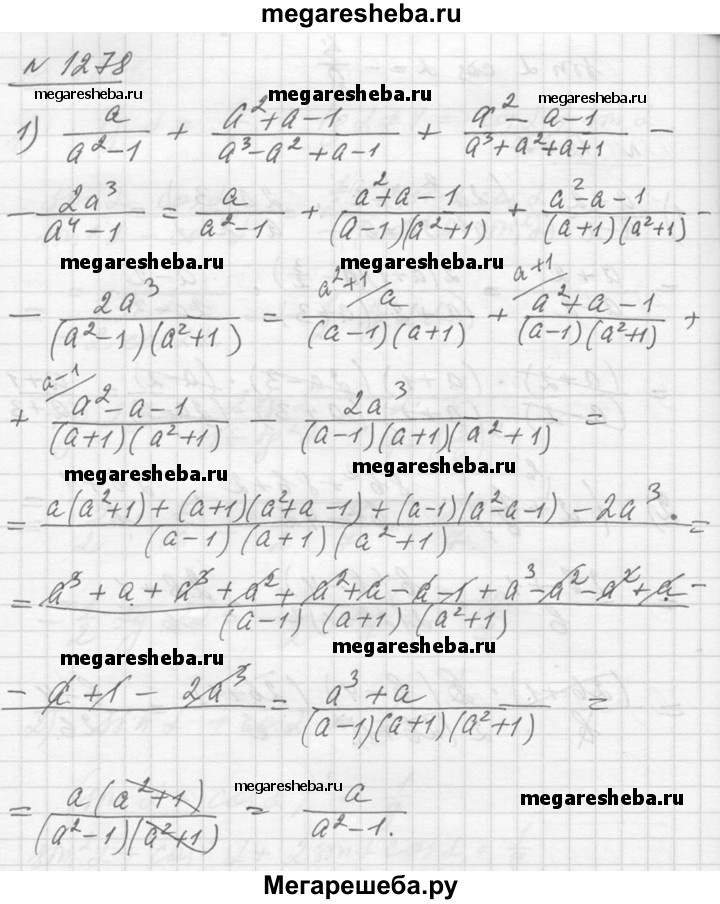 megaresheba.ru
N 1278
megaresheba.ru megaresheba.ru megaresheba.ru
1) a/(a²-1) + (a²+a-1)/(a³-a²+a-1) + (a²-a-1)/(a³+a²+a+1) -
- 2a³/(a⁴-1) = a/(a²-1) + (a²+a-1)/((a-1)(a²+1)) + (a²-a-1)/((a+1)(a²+1)) -
megaresheba.ru megaresheba.ru
- 2a³/((a²-1)(a²+1)) = a²+1/ a/((a-1)(a+1)) + a+1/ (a²+a-1)/((a-1)(a²+1)) +
+ a-1/ (a²-a-1)/((a+1)(a²+1)) - 2a³/((a-1)(a+1)(a²+1)) =
megaresheba.ru megaresheba.ru
= (a(a²+1)+(a+1)(a²+a-1)+(a-1)(a²-a-1)-2a³.)/((a-1)(a+1)(a²+1)) =
= (a³+a+a³+a²+a²+a-a-1+a³-a²-a²+a-)/((a-1)(a+1)(a²+1))
megaresheba.ru megaresheba.ru
- a+1-2a³ = (a³+a)/((a-1)(a+1)(a²+1)) =
= a(a²+1)/((a²-1)(a²+1)) = a/(a²-1).
megaresheba.ru megaresheba.ru
Мегарешеба.ру